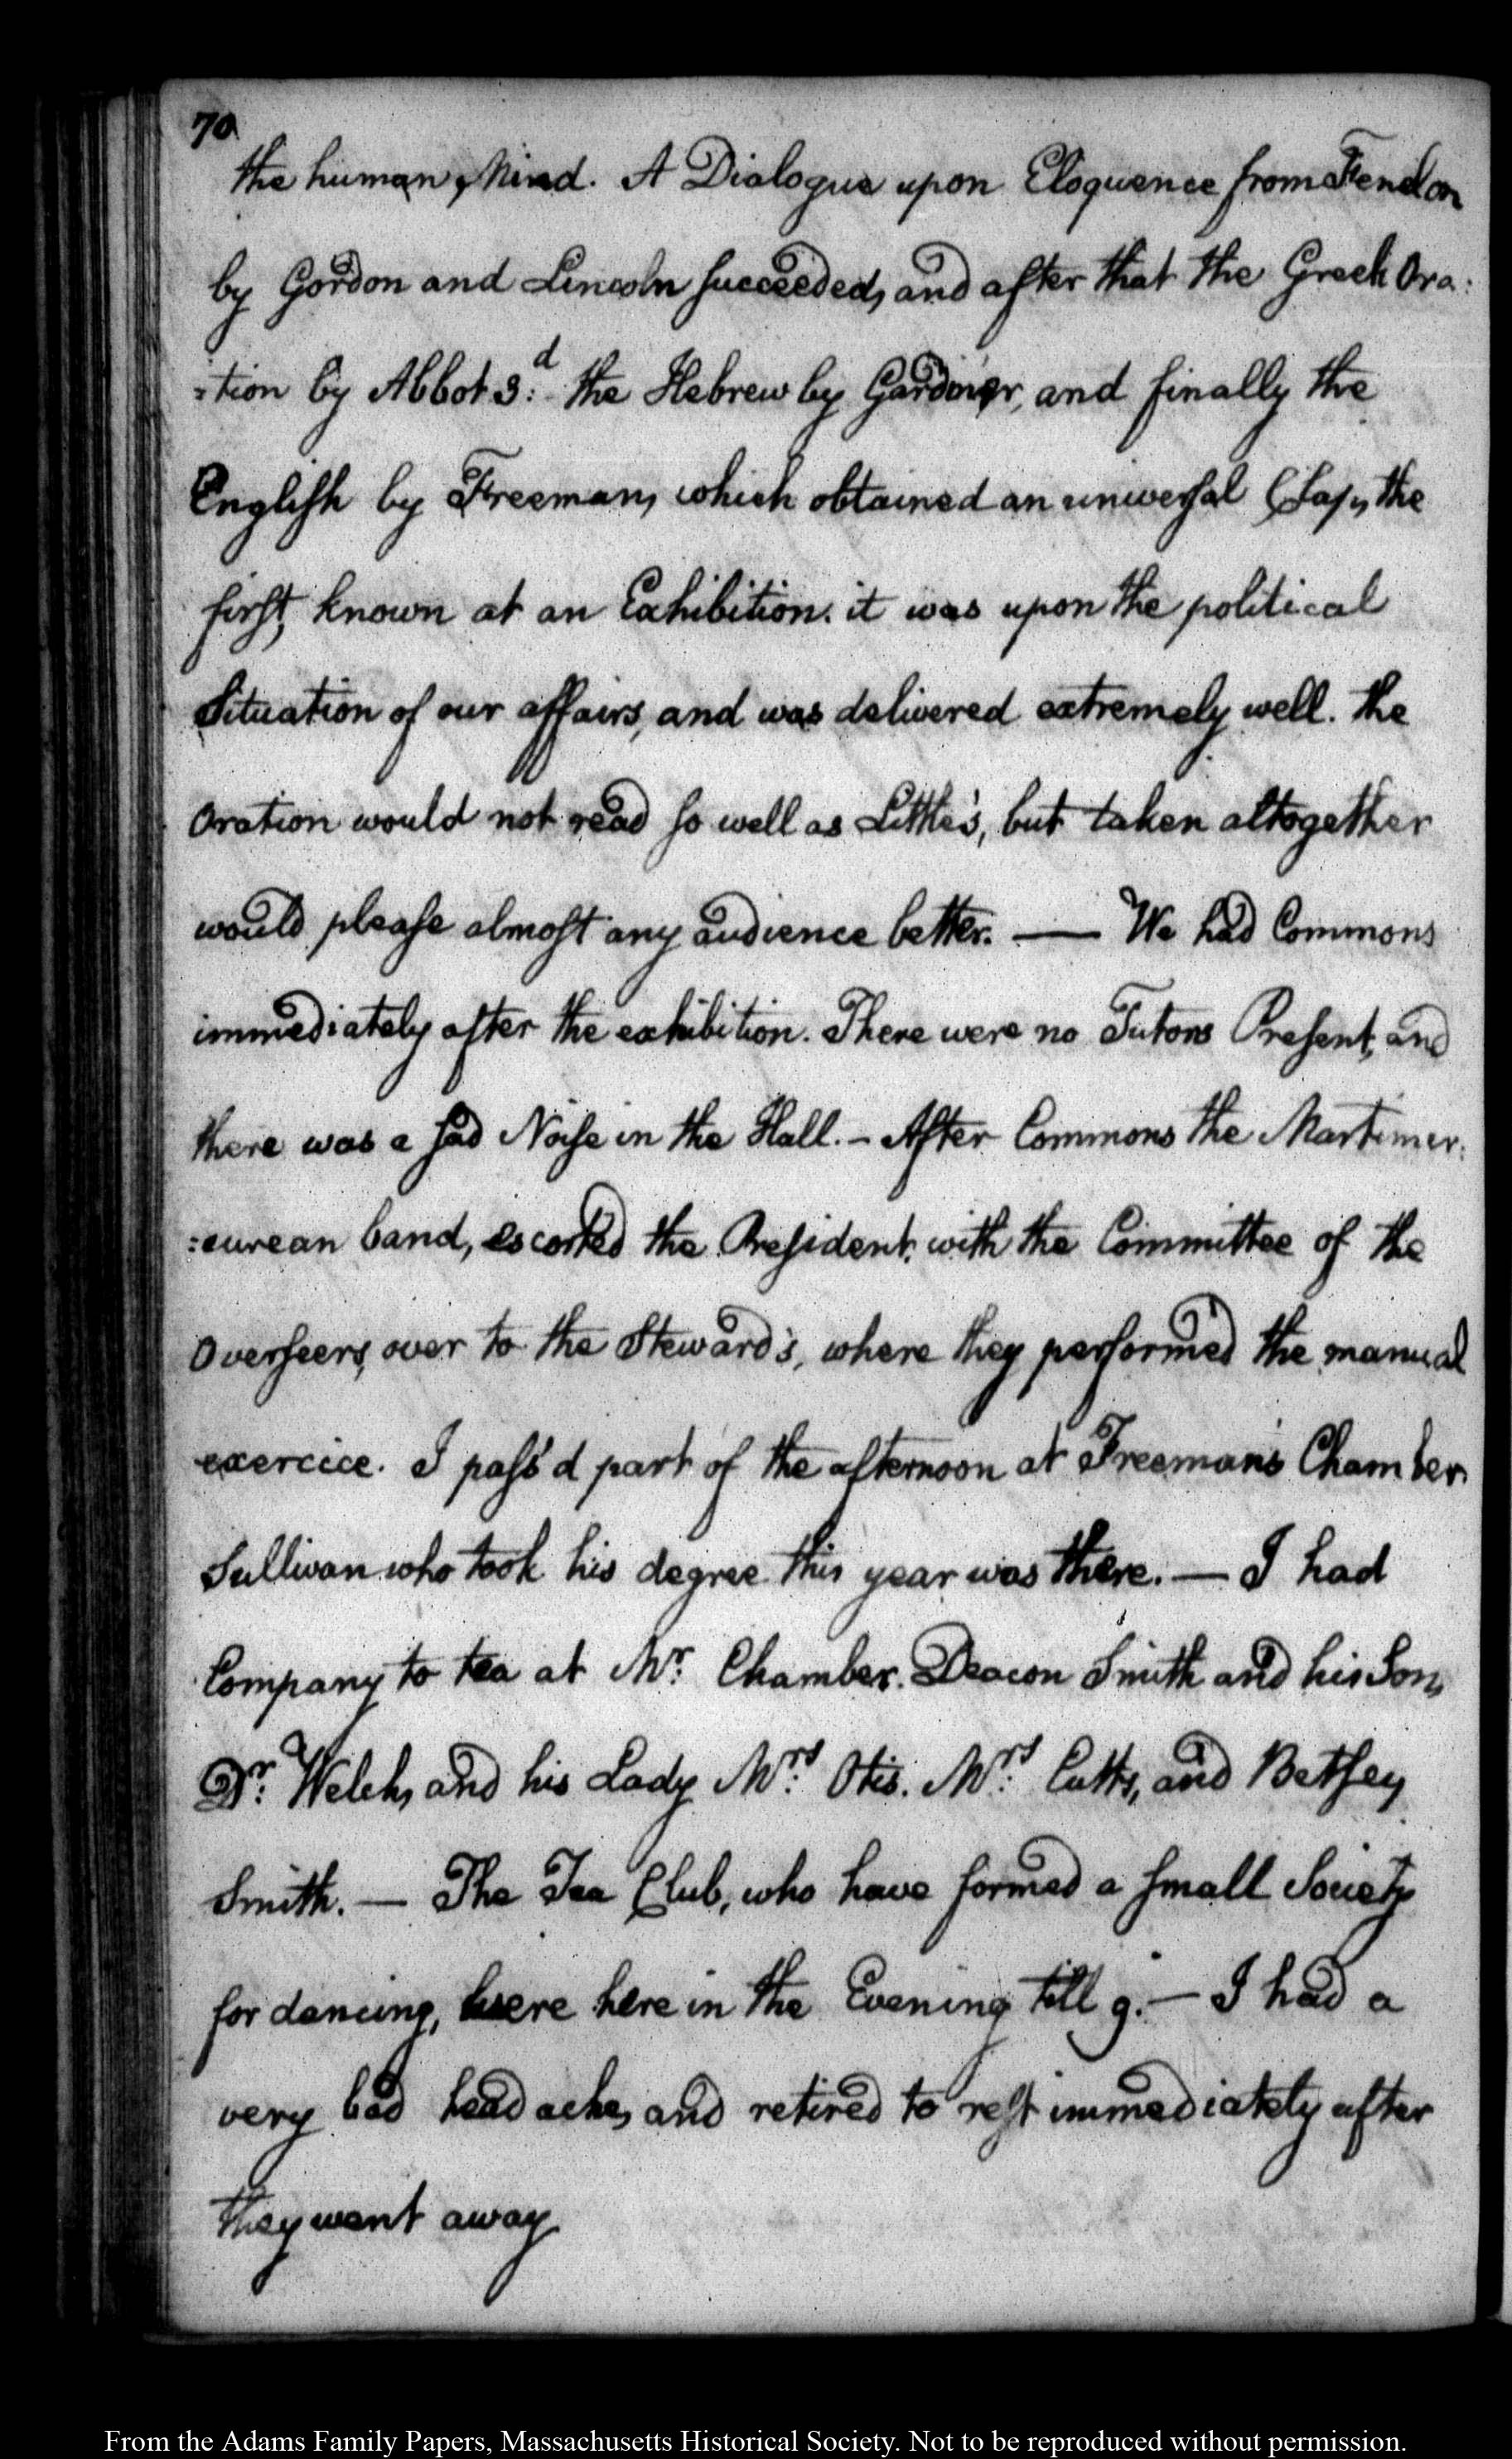 70
the human, Mind. A Dialogue upon Eloquence from Fenelon
by Gordon and Lincoln succeeded, and after that the Greek Ora:
:tion by Abbot 3:d the Hebrew by Gardiner, and finally the
English by Freeman, which obtained an universal Clap, the
first, known at an Exhibition. it was upon the political
Situation of our affairs, and was delivered extremely well. the
Oration would not read so well as Little's, but taken altogether
would please almost any audience better. — We had Commons
immediately after the exhibition. There were no Tutors Present, and
there was a sad Noise in the Hall. — After Commons the Martimer:
:curean band, escorted the President, with the Committee of the
Overseers, over to the Steward's, where they performed the manual
exercice. I pass'd part of the afternoon at Freeman's Chamber.
Sullivan who took his degree this year was there. — I had
Company to tea at Mr: Chamber. Deacon Smith and his Son,
Dr: Welch, and his Lady Mrs: Otis. Mrs: Cutts, and Betsey
Smith. — The Tea Club, who have formed a small Society
for dancing, were here in the Evening till 9. — I had a
very bad head ache, and retired to rest immediately after
they went away.
From the Adams Family Papers, Massachusetts Historical Society. Not to be reproduced without permission.